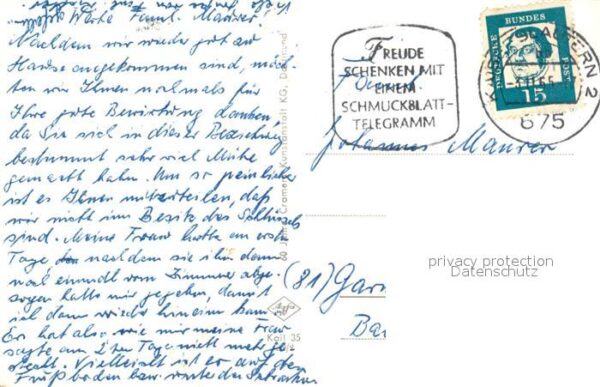 Werte Famil. Maurer!
Nachdem wir wieder gut zu
Hause angekommen sind, möch-
ten wir Ihnen nochmals für
Ihre gute Bewirtung danken,
da Sie sich in dieser Beziehung
bestimmt sehr viel Mühe
gemacht haben. Um so peinlicher
ist es Ihnen mitzuteilen, daß
wir nicht im Besitz des Schlüssels
sind. Meine Frau hatte am ersten
Tage nachdem sie ihn dann
noch einmal vom Zimmer abge-
zogen hatte mir gegeben, damit
ich dann wieder hinein kann
Er hat also wie mir meine Frau
sagte am 2ten Tage nicht mehr ge-
steckt. Vielleicht ist er auf den
Fußboden bzw. unter den Schrank
Cramers Kunstanstalt KG, Dortmund
Kait 35
FREUDE
SCHENKEN MIT
EINEM
SCHMUCKBLATT-
TELEGRAMM
DEUTSCHE BUNDESPOST
15
KAISERSLAUTERN 2
675
Johannes Maurer
(81) Gar
privacy protection
Datenschutz